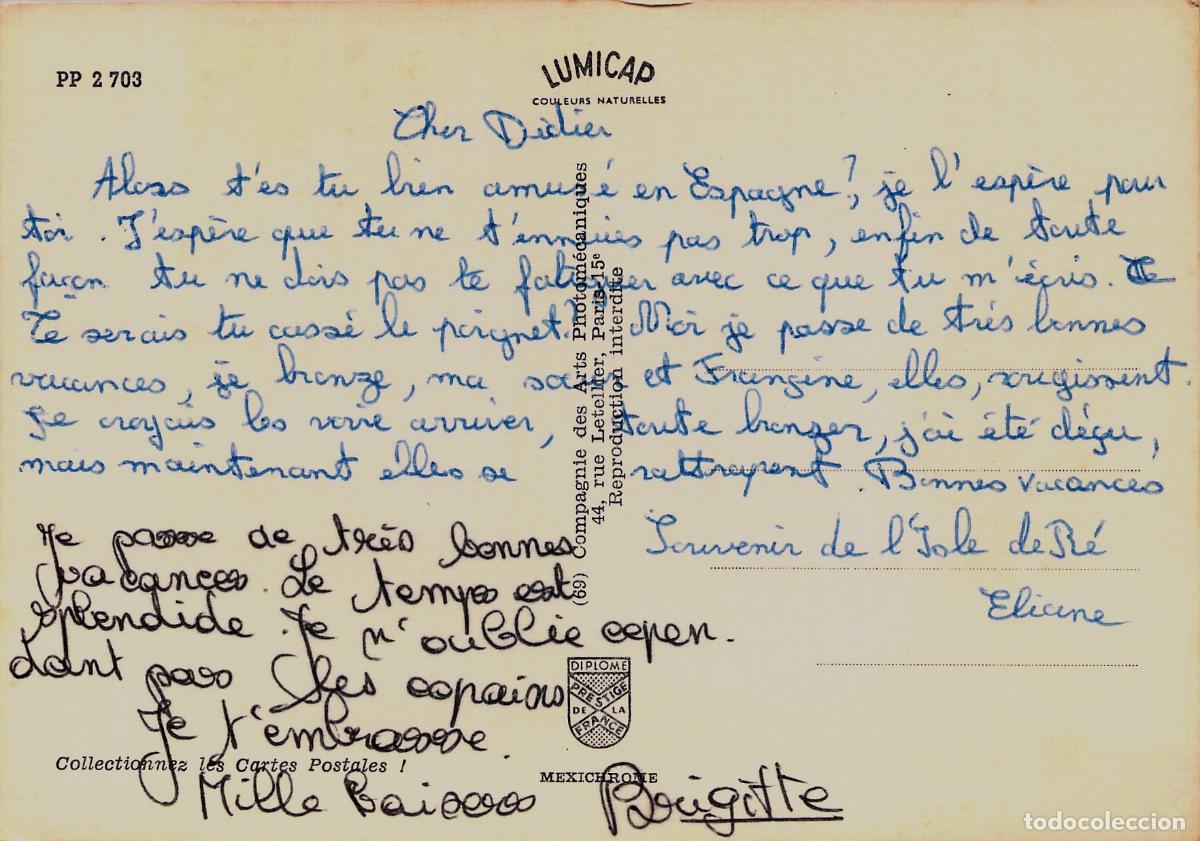 PP 2 703
LUMICAP
COULEURS NATURELLES
Cher Didier
Alors t'es tu bien amusé en Espagne?, je l'espère pour
toi. J'espère que tu ne t'ennuies pas trop, enfin de toute
façon tu ne dois pas te fatiguer avec ce que tu m'écris. Te
Te serais tu cassé le poignet? Moi je passe de très bonnes
vacances, je bronze, ma soeur et Frangine, elles, rougissent.
Je croyais les voire arriver, toute bronzer, j'ai été déçu,
mais maintenant elles se rattrapent. Bonnes vacances
Souvenir de l'Isle de Ré
Eliane
Je passe de très bonnes
vacances. Le temps est
splendide. Je n'oublie cepen.
dant pas les copains
Je t'embrasse.
Mille baisers Brigitte
(69) Compagnie des Arts Photomécaniques
44, rue Letellier, Paris-15e
Reproduction interdite
DIPLOME
PRESTIGE
DE LA
FRANCE
MEXICHROME
Collectionnez les Cartes Postales !
todocoleccion